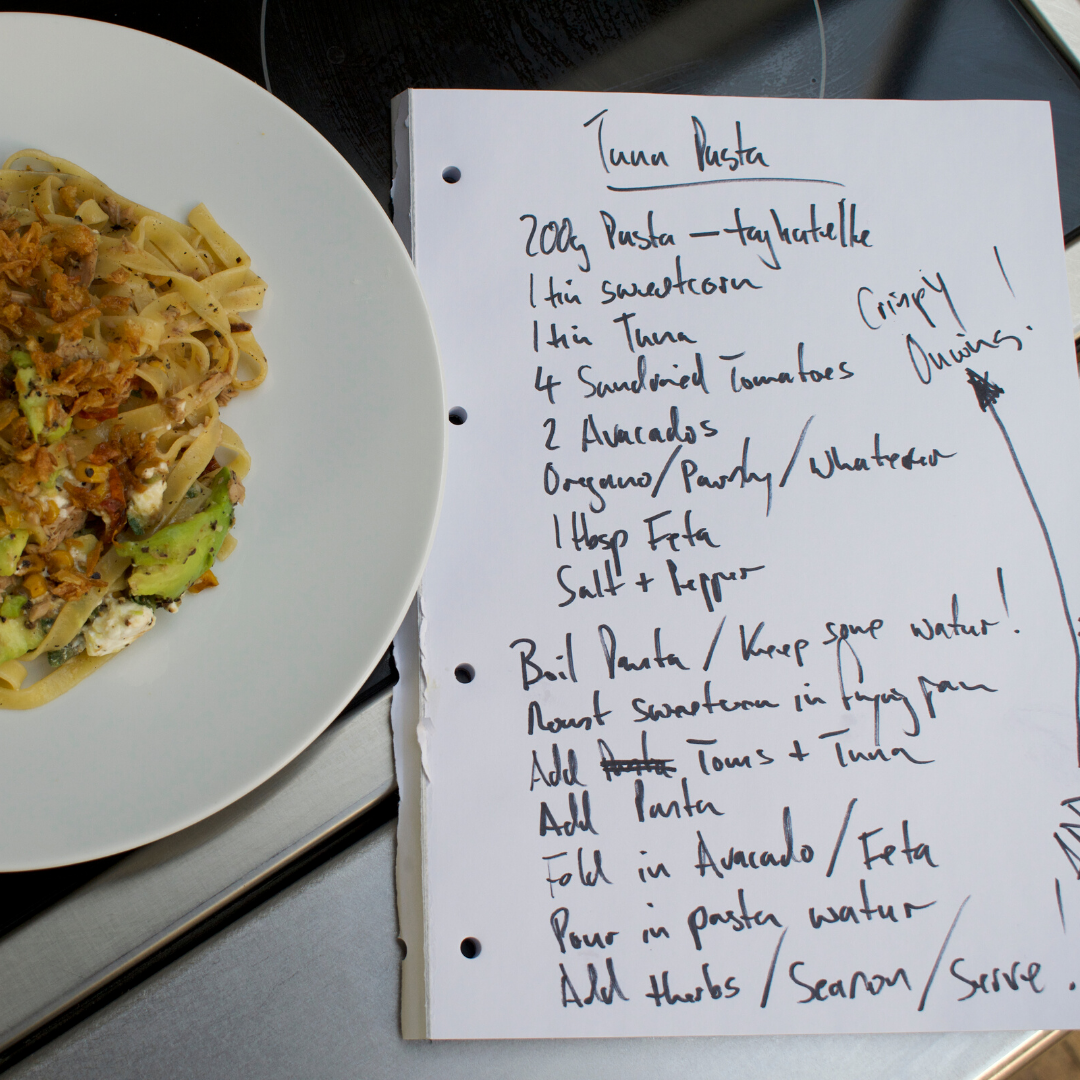 Tuna Pasta
200g Pasta — taghatelle
1 tin sweetcorn
1 tin Tuna
4 Sundried Tomatoes
2 Avacados
Oregano/Parsly/Whatever
1 tbsp Feta
Salt + Pepper
Crispy !
Onions.
Boil Pasta / Keep some water!
Roast sweetcorn in frying pan
Add Toms + Tuna
Add Pasta
Fold in Avacado / Feta
Pour in pasta water
Add Herbs / Season / Serve.